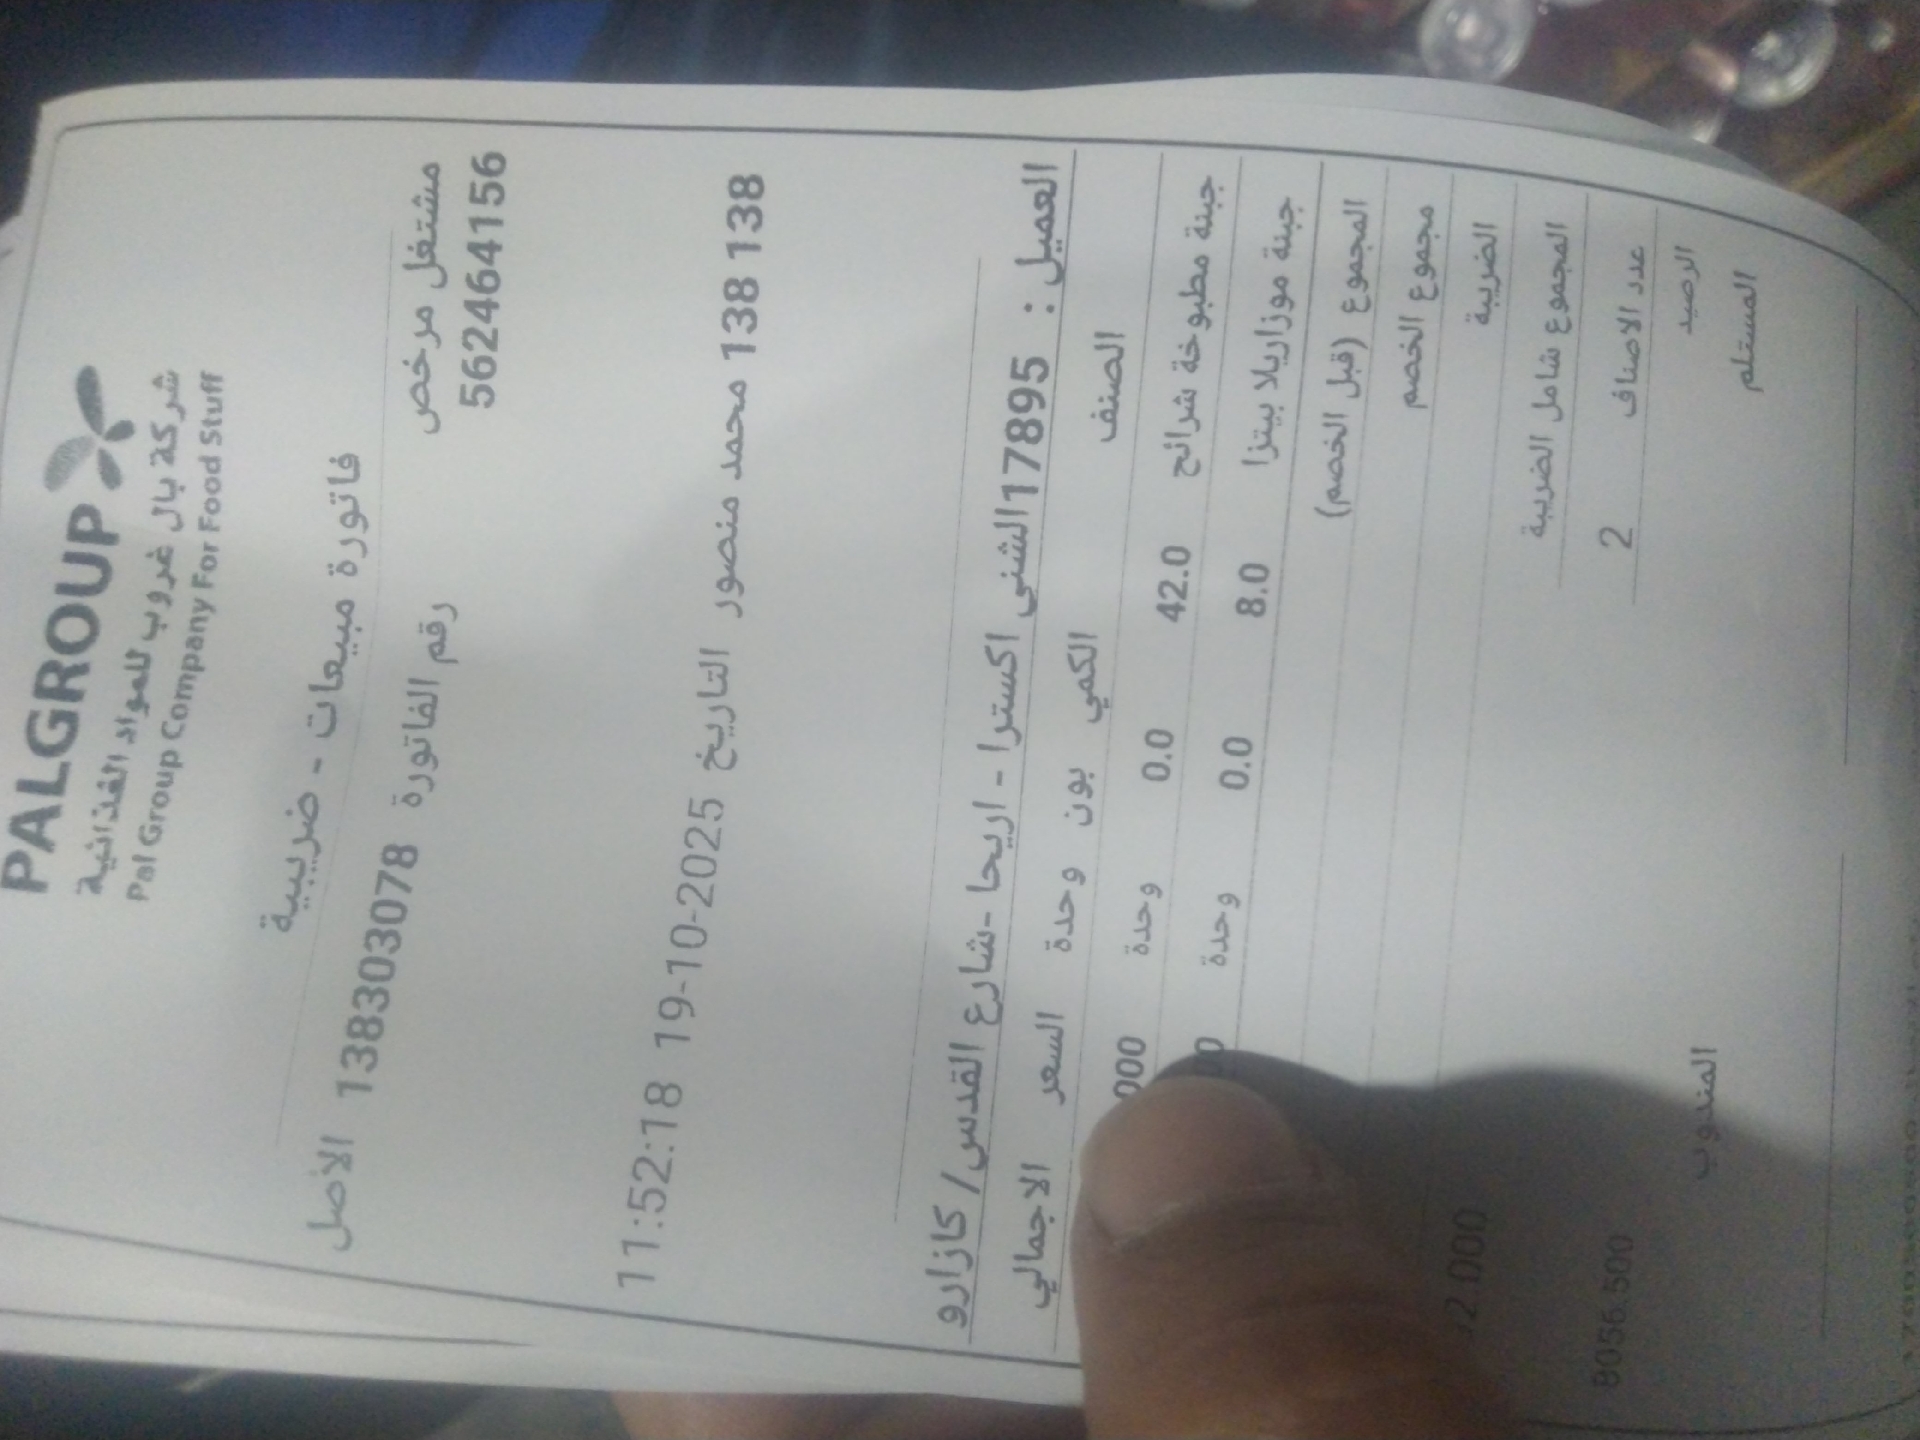 PALGROUP
شركة بال غروب للمواد الغذائية
Pal Group Company For Food Stuff
فاتورة مبيعات - ضريبية
مشتغل مرخص رقم الفاتورة 138303078 الاصل
562464156
138 138 محمد منصور التاريخ 19-10-2025 11:52:18
العميل : 17895الشني اكسترا - اريحا -شارع القدس/ كازارو
الصنف الكمي بون وحدة السعر الاجمالي
جبنة مطبوخة شرائح 42.0 0.0 وحدة
جبنة موزاريلا بيتزا 8.0 0.0 وحدة
المجموع (قبل الخصم)
مجموع الخصم
الضريبة
المجموع شامل الضريبة
عدد الاصناف 2
الرصيد 8056.500
المستلم المندوب